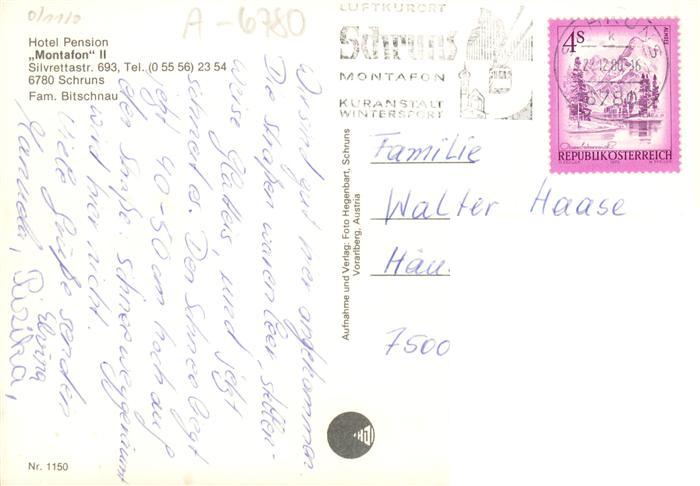 0/11/0
A-6780
Hotel Pension
„Montafon“ II
Silvrettastr. 693, Tel. (0 55 56) 23 54
6780 Schruns
Fam. Bitschnau
LUFTKURORT
Schruns
MONTAFON
KURANSTALT
WINTERSPORT
4S
REPUBLIK ÖSTERREICH
6780
Wir sind gut hier angekommen.
Die Straßen waren leer, stellen-
weise Glatteis, und jetzt
schneit es. Der Schnee liegt
jetzt 40-50 cm hoch auf
der Straße. Schnee weggeräumt
wird hier nicht.
Viele Grüße senden
Manuela,
Elvira
Familie
Walter Haase
7500
Aufnahme und Verlag: Foto Hegenbart, Schruns
Vorarlberg, Austria
Nr. 1150